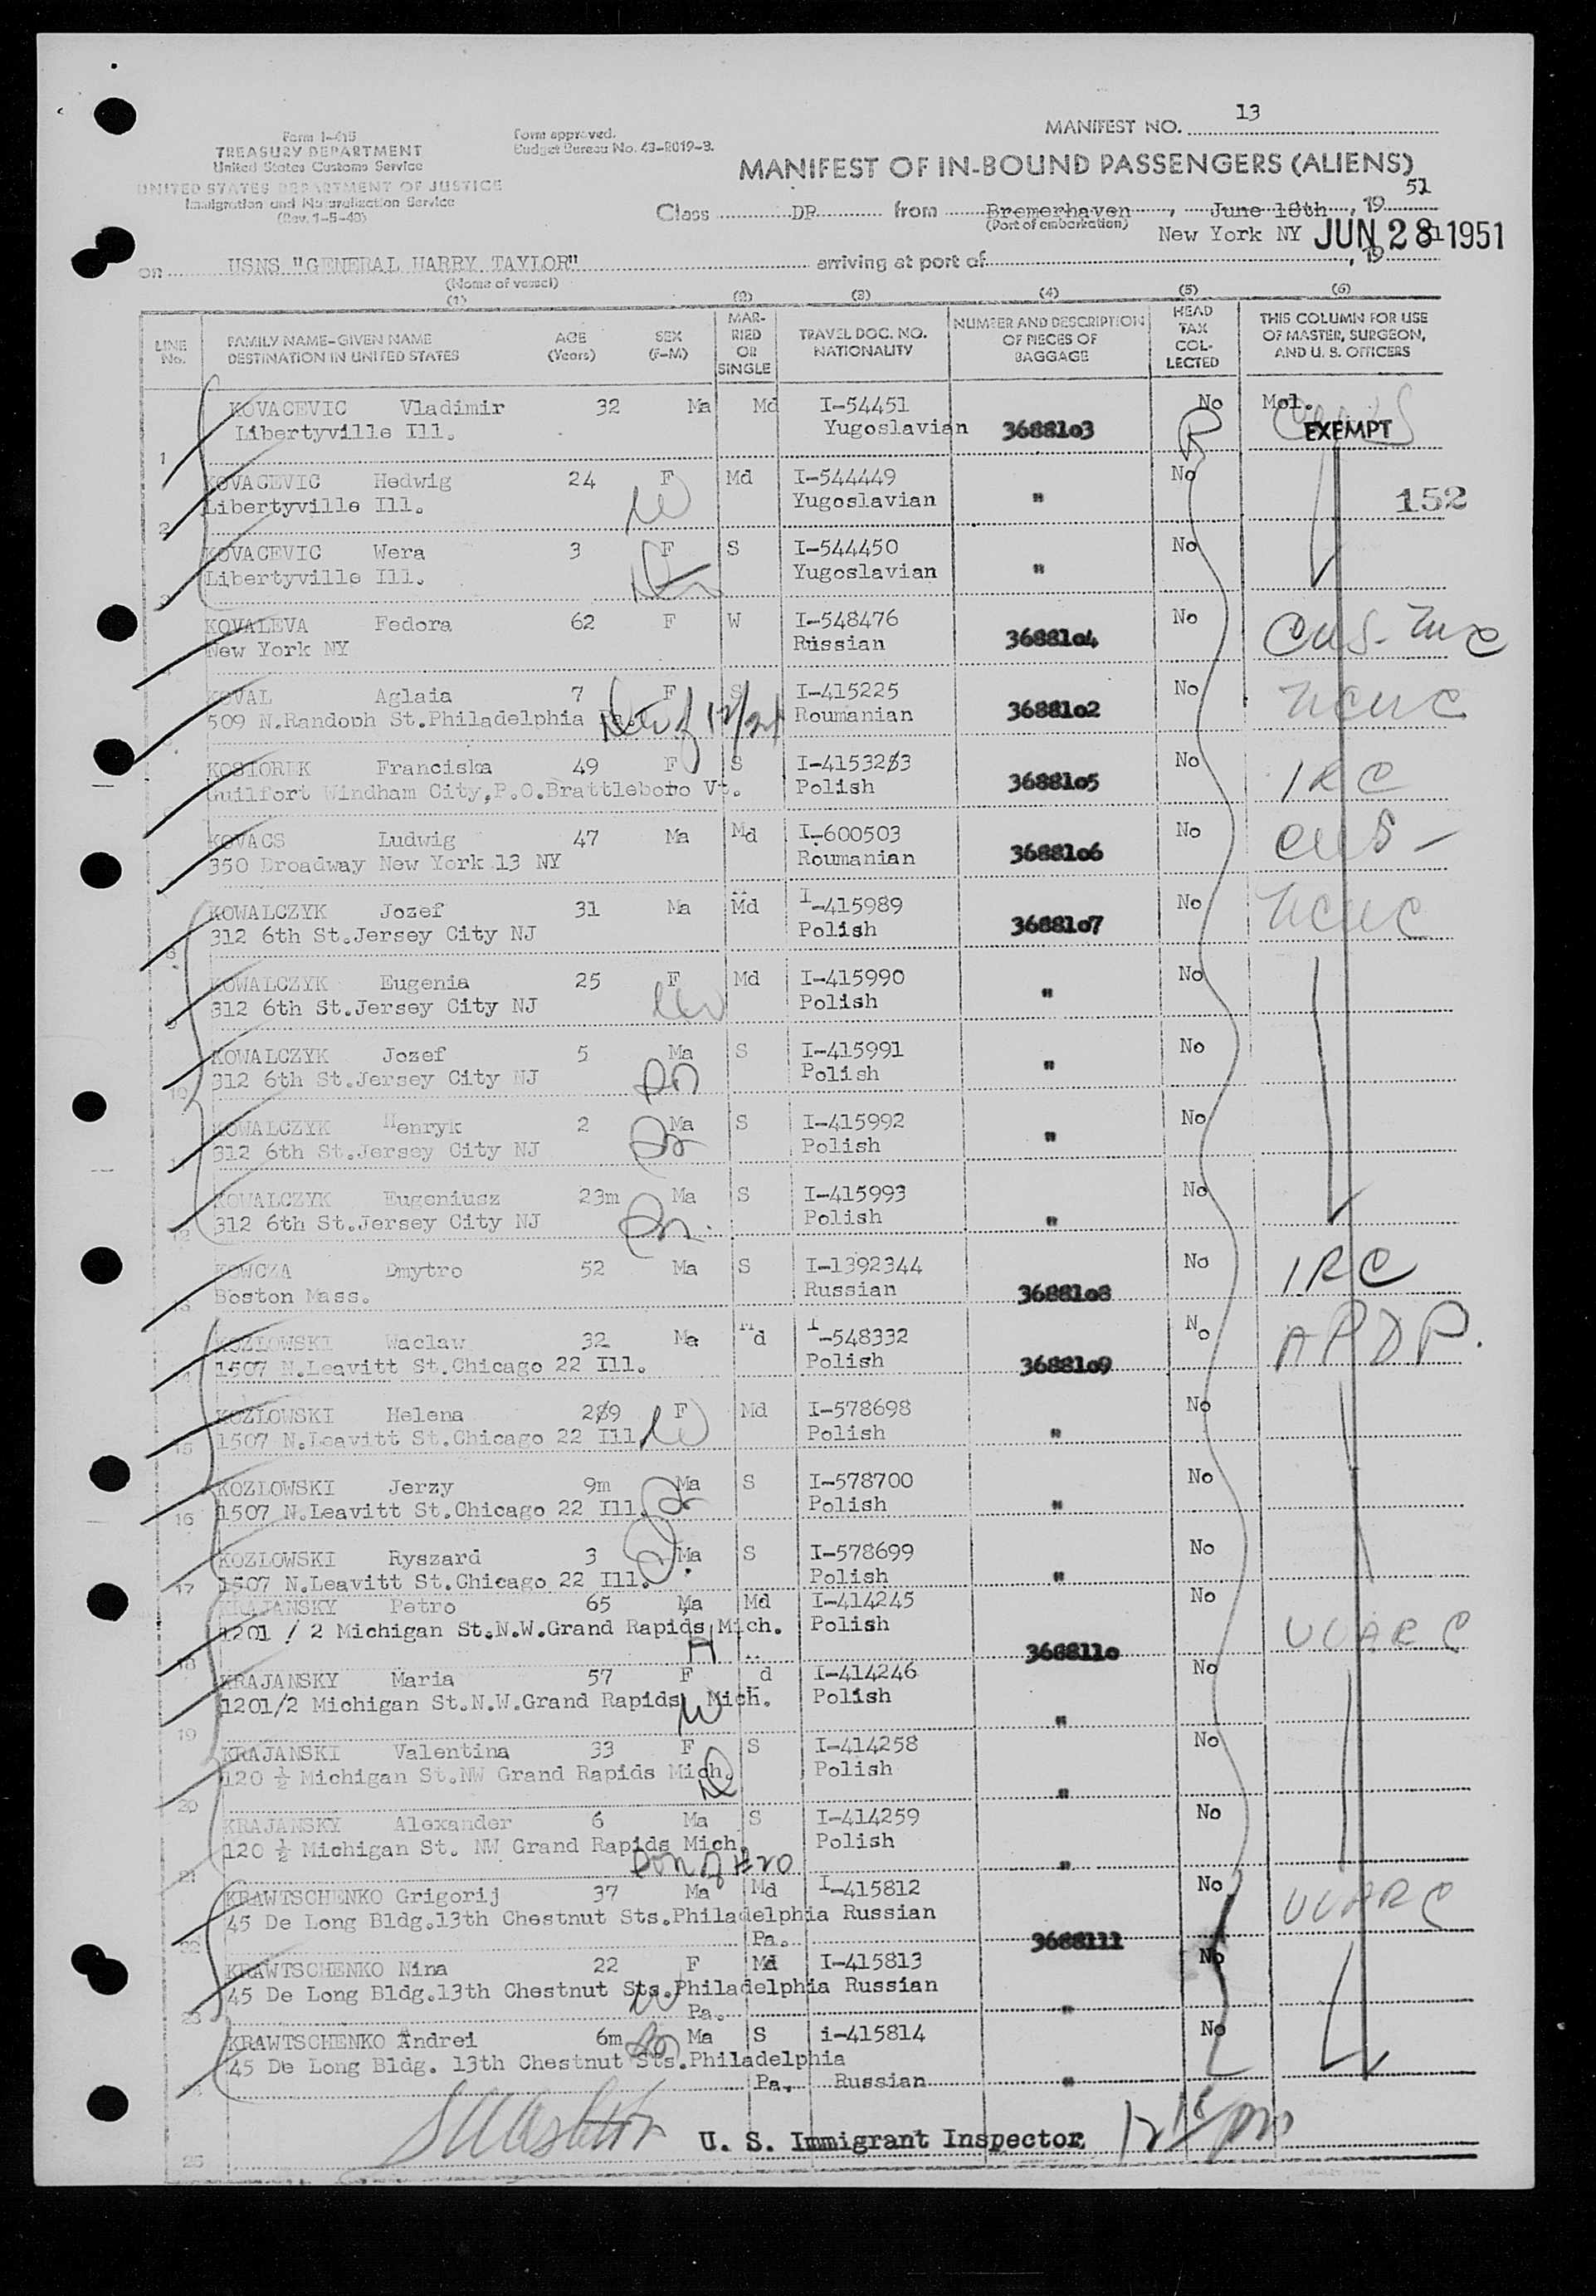 MANIFEST NO. 13
Form I-415
TREASURY DEPARTMENT
United States Customs Service
UNITED STATES DEPARTMENT OF JUSTICE
Immigration and Naturalization Service
(Rev. 1-5-49)
Form approved.
Budget Bureau No. 43-R019-3.
MANIFEST OF IN-BOUND PASSENGERS (ALIENS)
Class DP from Bremerhaven, June 18th, 1951
(Port of embarkation)
on USNS "GENERAL HARRY TAYLOR" arriving at port of New York NY JUN 28 1951, 19
(Name of vessel)
(1) (2) (3) (4) (5) (6)
LINE No. FAMILY NAME-GIVEN NAME DESTINATION IN UNITED STATES AGE (Years) SEX (F-M) MARRIED OR SINGLE TRAVEL DOC. NO. NATIONALITY NUMBER AND DESCRIPTION OF PIECES OF BAGGAGE HEAD TAX COLLECTED THIS COLUMN FOR USE OF MASTER, SURGEON, AND U. S. OFFICERS
KOVACEVIC Vladimir 32 Ma Md I-54451 No Mol.
1 Libertyville Ill. Yugoslavian 3688103 EXEMPT
KOVACEVIC Hedwig 24 F Md I-544449 No
2 Libertyville Ill. Yugoslavian " 152
KOVACEVIC Wera 3 F S I-544450 No
3 Libertyville Ill. Yugoslavian "
KOVALEVA Fedora 62 F W I-548476 No
4 New York NY Russian 3688104
KOVAL Aglaia 7 F S I-415225 No
5 509 N.Randoph St.Philadelphia Pa. Roumanian 3688102 NCWC
KOSIOREK Franciska 49 F S I-4153283 No
6 Guilfort Windham City,P.O.Brattleboro Vt. Polish 3688105 IRC
KOVACS Ludwig 47 Ma Md I-600503 No
7 350 Broadway New York 13 NY Roumanian 3688106
KOWALCZYK Jozef 31 Ma Md I-415989 No
8 312 6th St.Jersey City NJ Polish 3688107 NCWC
KOWALCZYK Eugenia 25 F Md I-415990 No
9 312 6th St.Jersey City NJ Polish "
KOWALCZYK Jozef 5 Ma S I-415991 No
10 312 6th St.Jersey City NJ Polish "
KOWALCZYK Henryk 2 Ma S I-415992 No
11 312 6th St.Jersey City NJ Polish "
KOWALCZYK Eugeniusz 23m Ma S I-415993 No
12 312 6th St.Jersey City NJ Polish "
KOWCZA Dmytro 52 Ma S I-1392344 No
13 Boston Mass. Russian 3688108 IRC
KOZLOWSKI Waclaw 32 Ma Md I-548332 No
14 1507 N.Leavitt St.Chicago 22 Ill. Polish 3688109 APDP.
KOZLOWSKI Helena 289 F Md I-578698 No
15 1507 N.Leavitt St.Chicago 22 Ill. Polish "
KOZLOWSKI Jerzy 9m Ma S I-578700 No
16 1507 N.Leavitt St.Chicago 22 Ill. Polish "
KOZLOWSKI Ryszard 3 Ma S I-578699 No
17 1507 N.Leavitt St.Chicago 22 Ill. Polish "
KRAJANSKY Petro 65 Ma Md I-414245 No
18 1201 / 2 Michigan St.N.W.Grand Rapids Mich. Polish 3688110 UUARC
H
KRAJANSKY Maria 57 F d I-414246 No
19 1201/2 Michigan St.N.W.Grand Rapids Mich. Polish "
KRAJANSKI Valentina 33 F S I-414258 No
20 120 ½ Michigan St.NW Grand Rapids Mich. Polish "
KRAJANSKY Alexander 6 Ma S I-414259 No
21 120 ½ Michigan St. NW Grand Rapids Mich. Polish "
son of #20
KRAWTSCHENKO Grigorij 37 Ma Md I-415812 No
45 De Long Bldg.13th Chestnut Sts.Philadelphia Russian UUARC
22 Pa. 3688111
KRAWTSCHENKO Nina 22 F Md I-415813 No
45 De Long Bldg.13th Chestnut Sts.Philadelphia Russian
23 Pa. "
KRAWTSCHENKO Andrei 6m Ma S i-415814 No
45 De Long Bldg. 13th Chestnut Sts.Philadelphia
Pa. Russian "
U. S. Immigrant Inspector
25